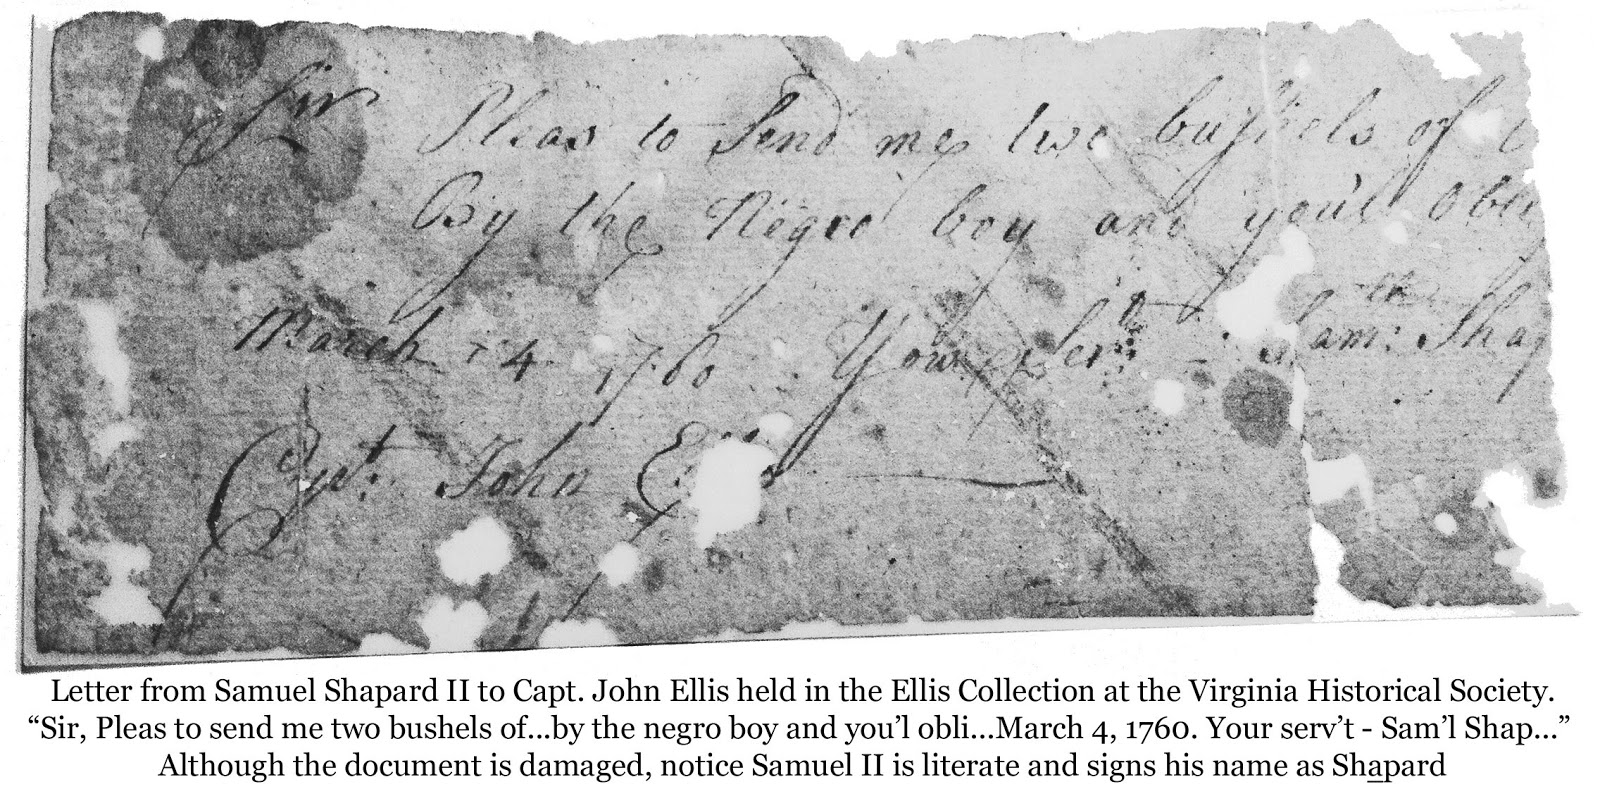 Sir Pleas to Send me two bushels of
By the Negro boy and you'l Obli
March 4 1760 Your Servt - Sam: Shap
Capt: John
Letter from Samuel Shapard II to Capt. John Ellis held in the Ellis Collection at the Virginia Historical Society.
“Sir, Pleas to send me two bushels of...by the negro boy and you’l obli...March 4, 1760. Your serv’t - Sam’l Shap...”
Although the document is damaged, notice Samuel II is literate and signs his name as Shapard